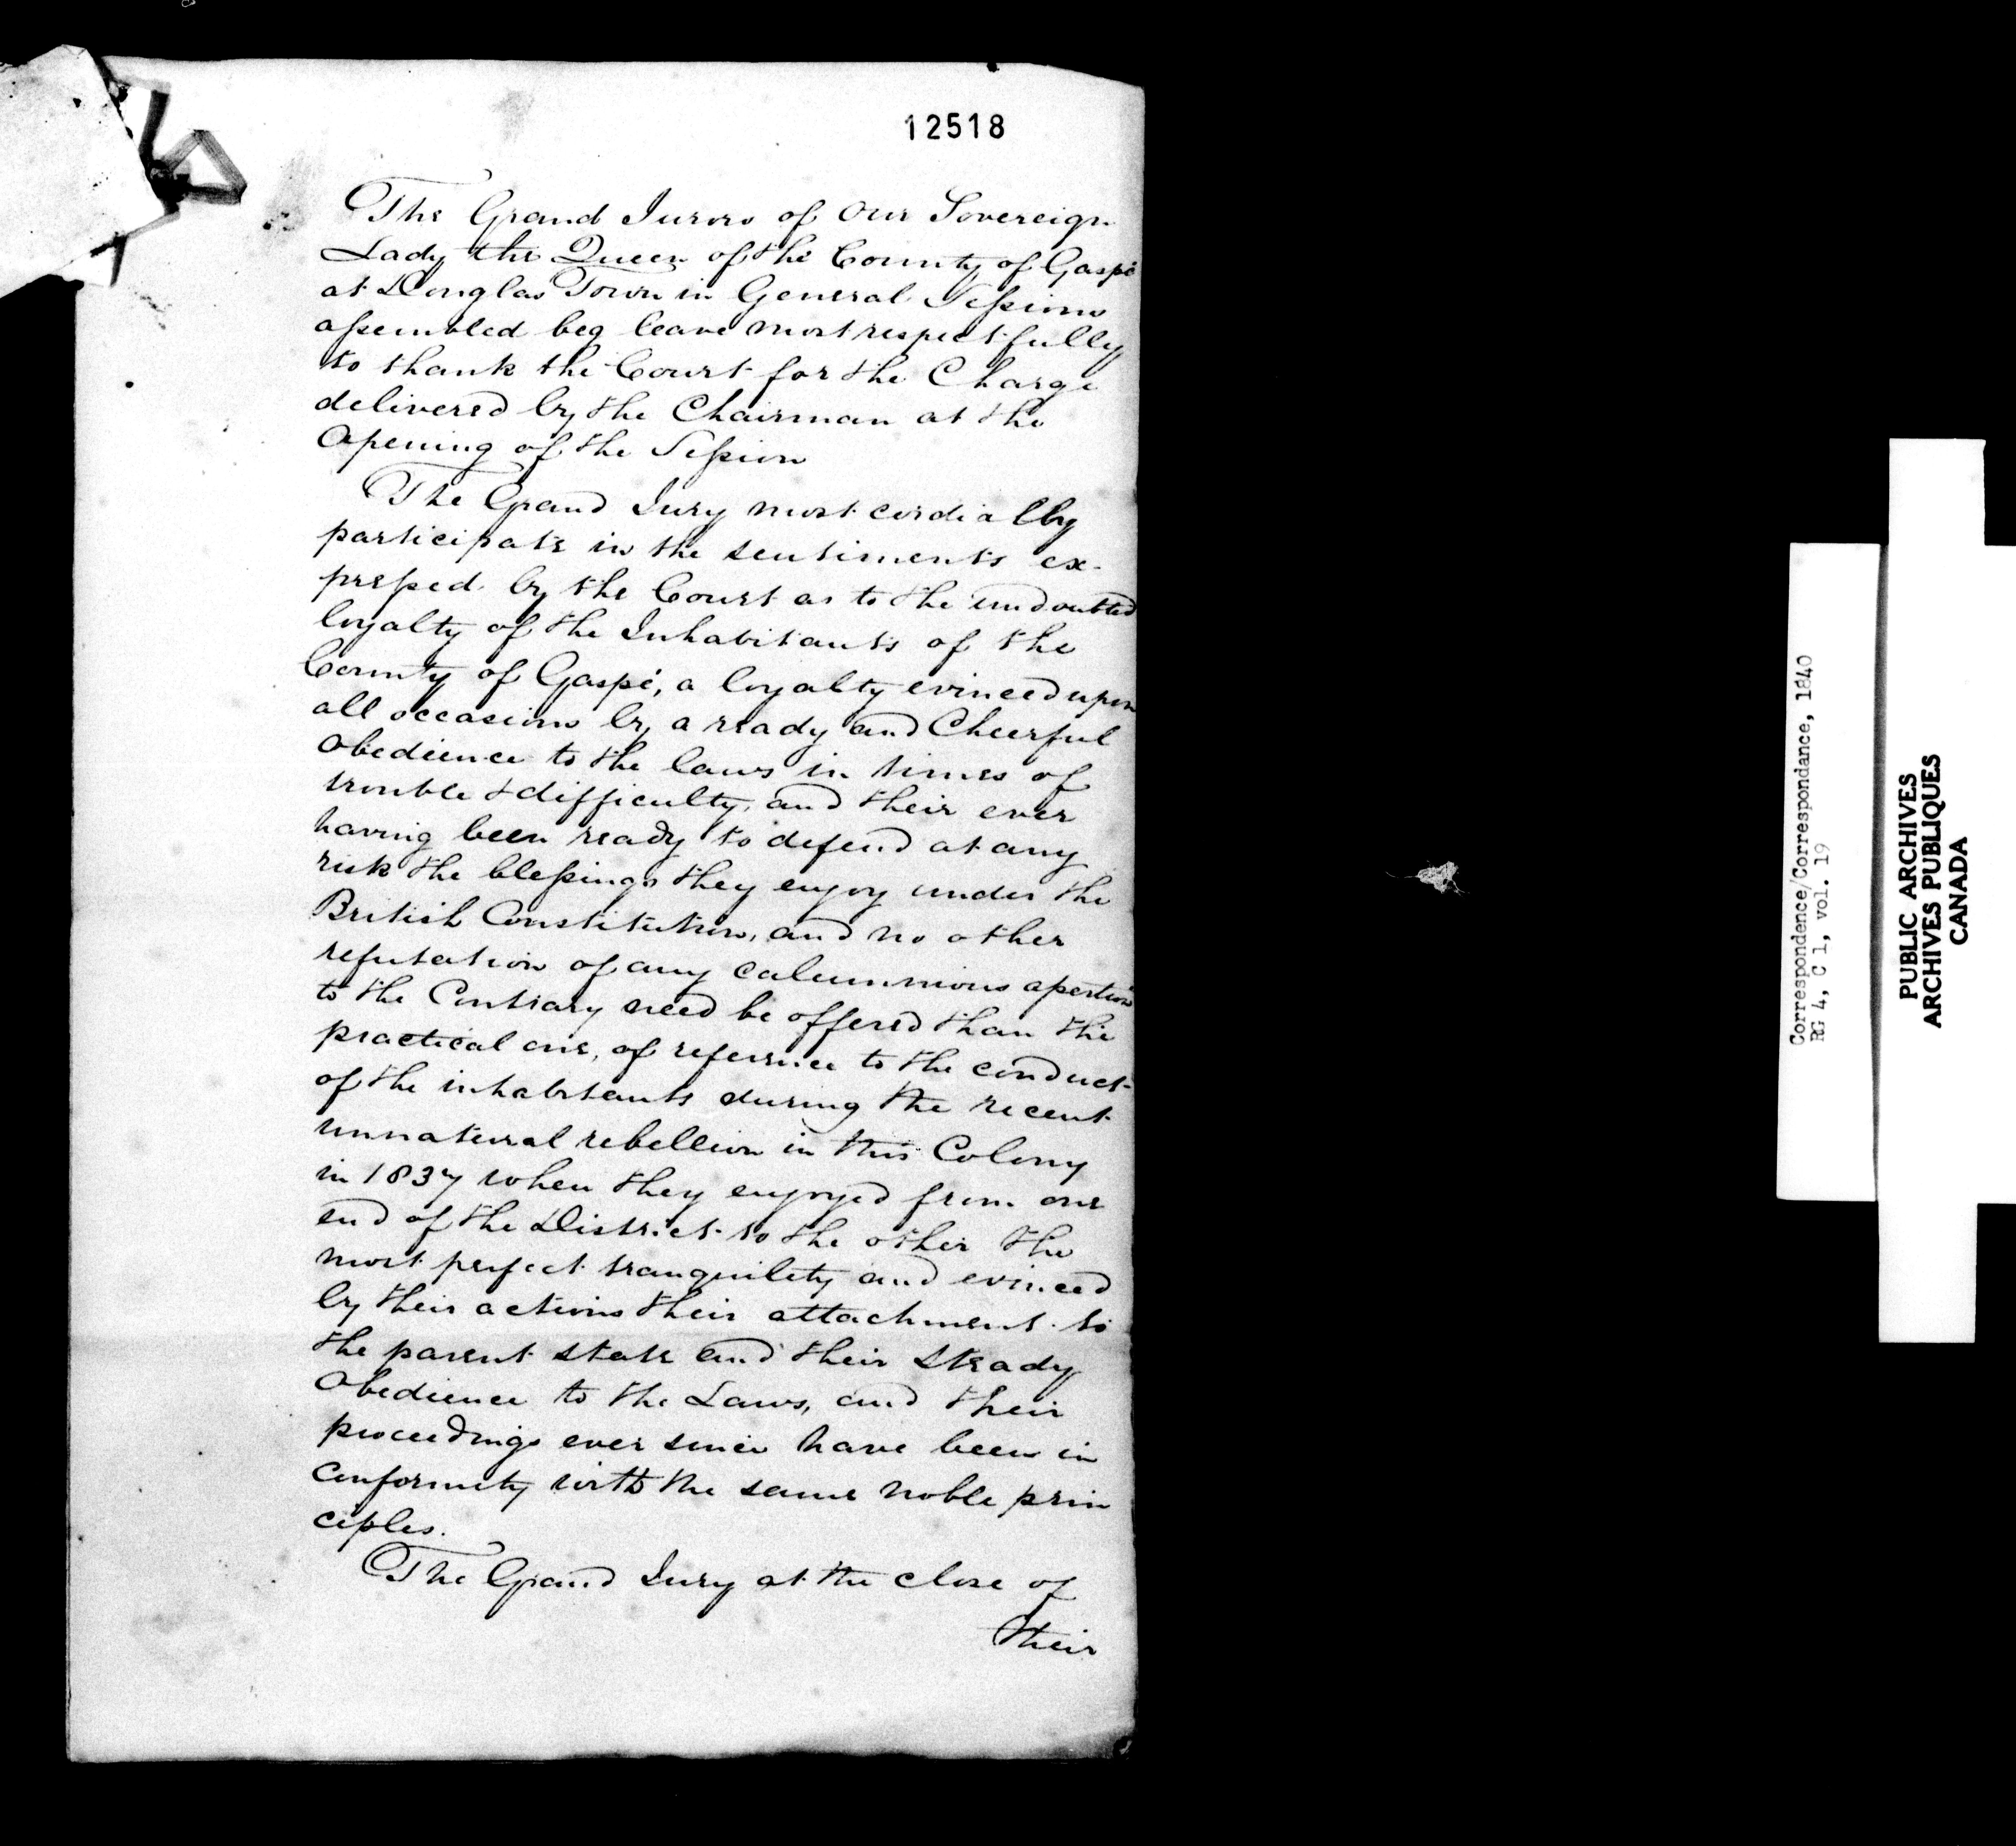 12518
The Grand Jurors of Our Sovereign
Lady the Queen of the County of Gaspé
at Douglas Town in General Sessions
assembled beg leave most respectfully
to thank the Court for the Charge
delivered by the Chairman at the
Opening of the Session
The Grand Jury most cordially
participate in the sentiments ex-
pressed by the Court as to the undoubted
loyalty of the Inhabitants of the
County of Gaspé, a loyalty evinced upon
all occasions by a ready and Cheerful
Obedience to the laws in times of
trouble & difficulty, and their ever
having been ready to defend at any
risk the blessings they enjoy under the
British Constitution, and no other
refutation of any calumnious assertions
to the Contrary need be offered than the
practical one, of reference to the conduct
of the inhabitants during the recent
unnatural rebellion in this Colony
in 1837 when they enjoyed from one
end of the District to the other the
most perfect tranquility and evinced
by their actions their attachment to
the parent state and their steady
Obedience to the Laws, and their
proceedings ever since have been in
Conformity with the same noble prin
ciples.
The Grand Jury at the close of
their
Correspondence/Correspondance, 1840
RG 4, C 1, vol. 19
PUBLIC ARCHIVES
ARCHIVES PUBLIQUES
CANADA